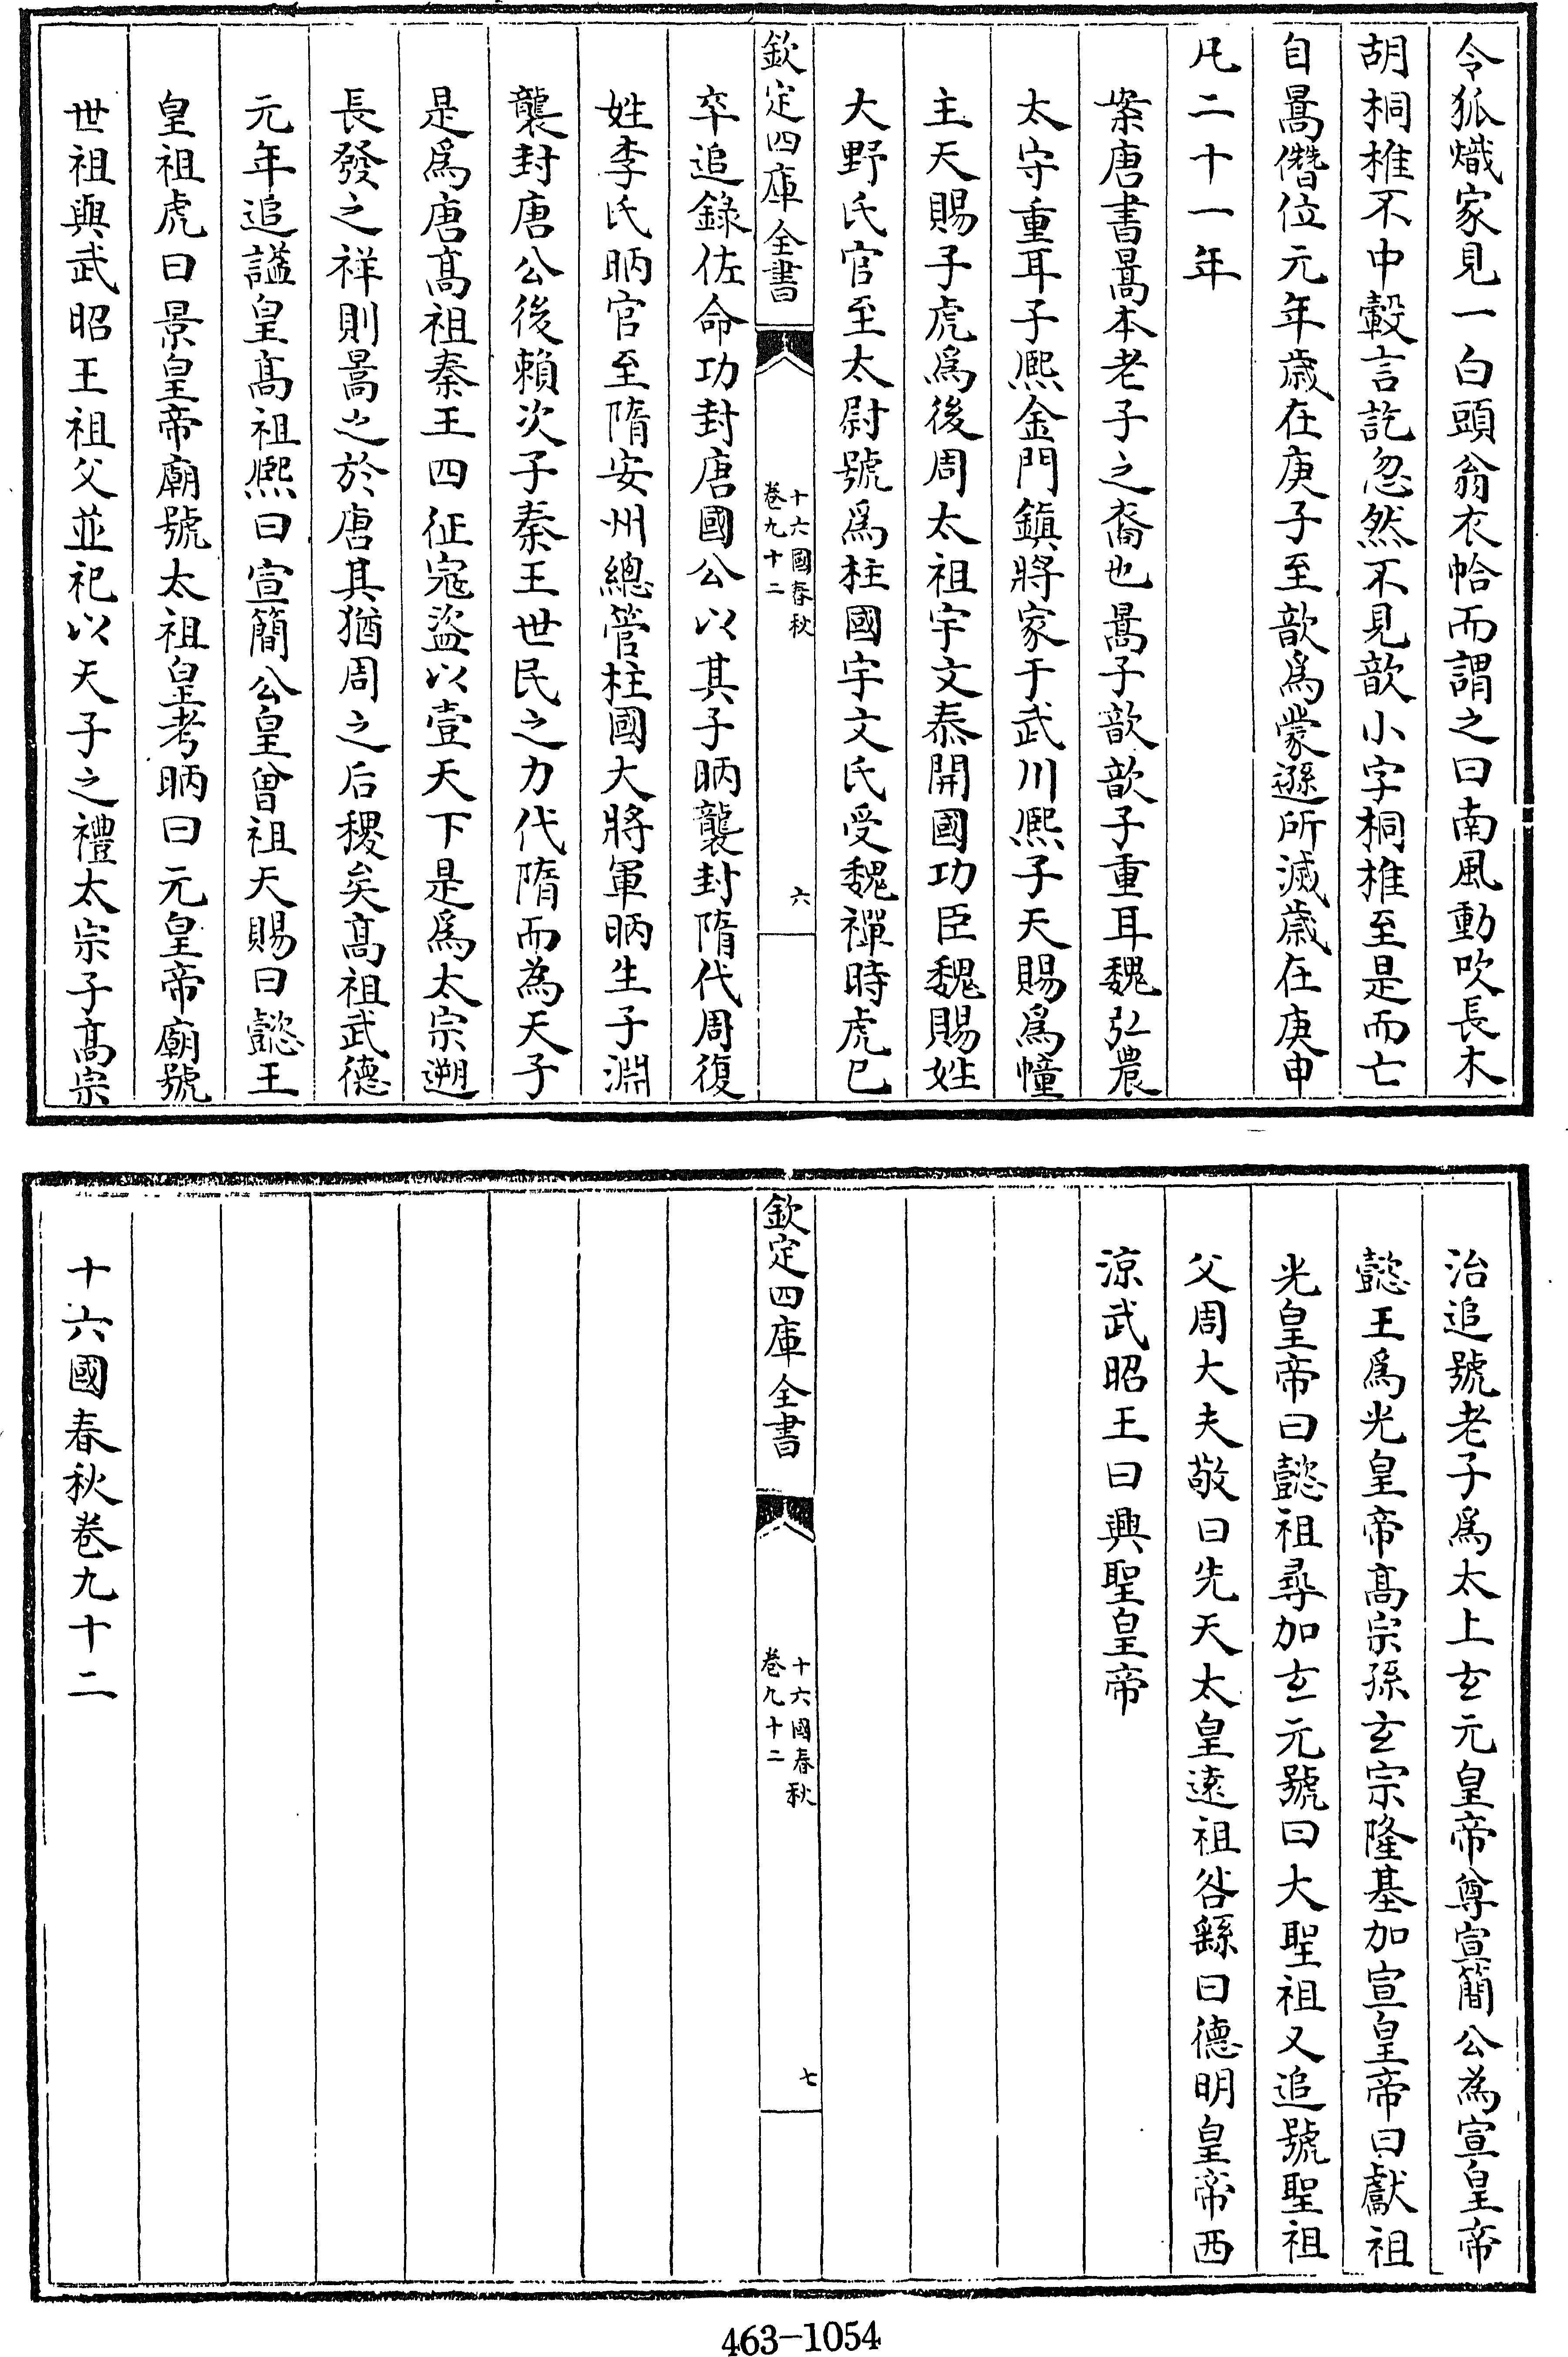 令狐熾家見一白頭翁衣帢而謂之曰南風動吹長木
胡桐椎不中轂言訖忽然不見歆小字桐椎至是而亡
自暠僭位元年歲在庚子至歆為蒙遜所滅歲在庚申
凡二十一年
案唐書暠本老子之裔也暠子歆歆子重耳魏弘農
太守重耳子熈金門鎮將家于武川熈子天賜為幢
主天賜子虎為後周太祖宇文泰開國功臣魏賜姓
大野氏官至太尉號為柱國宇文氏受魏禪時虎已
欽定四庫全書
十六國春秋
卷九十二
六
卒追錄佐命功封唐國公以其子昞襲封隋代周復
姓李氏昞官至隋安州總管柱國大將軍昞生子淵
襲封唐公後賴次子秦王世民之力代隋而為天子
是為唐髙祖秦王四征寇盜以壹天下是為太宗遡
長發之祥則暠之於唐其猶周之后稷矣髙祖武德
元年追諡皇髙祖熈曰宣簡公皇曾祖天賜曰懿王
皇祖虎曰景皇帝廟號太祖皇考昞曰元皇帝廟號
世祖與武昭王祖父並祀以天子之禮太宗子髙宗
治追號老子為太上玄元皇帝尊宣簡公為宣皇帝
懿王為光皇帝髙宗孫玄宗隆基加宣皇帝曰獻祖
光皇帝曰懿祖尋加玄元號曰大聖祖又追號聖祖
父周大夫敬曰先天太皇遠祖咎繇曰德明皇帝西
涼武昭王曰興聖皇帝
欽定四庫全書
十六國春秋
卷九十二
七
十六國春秋卷九十二
463-1054